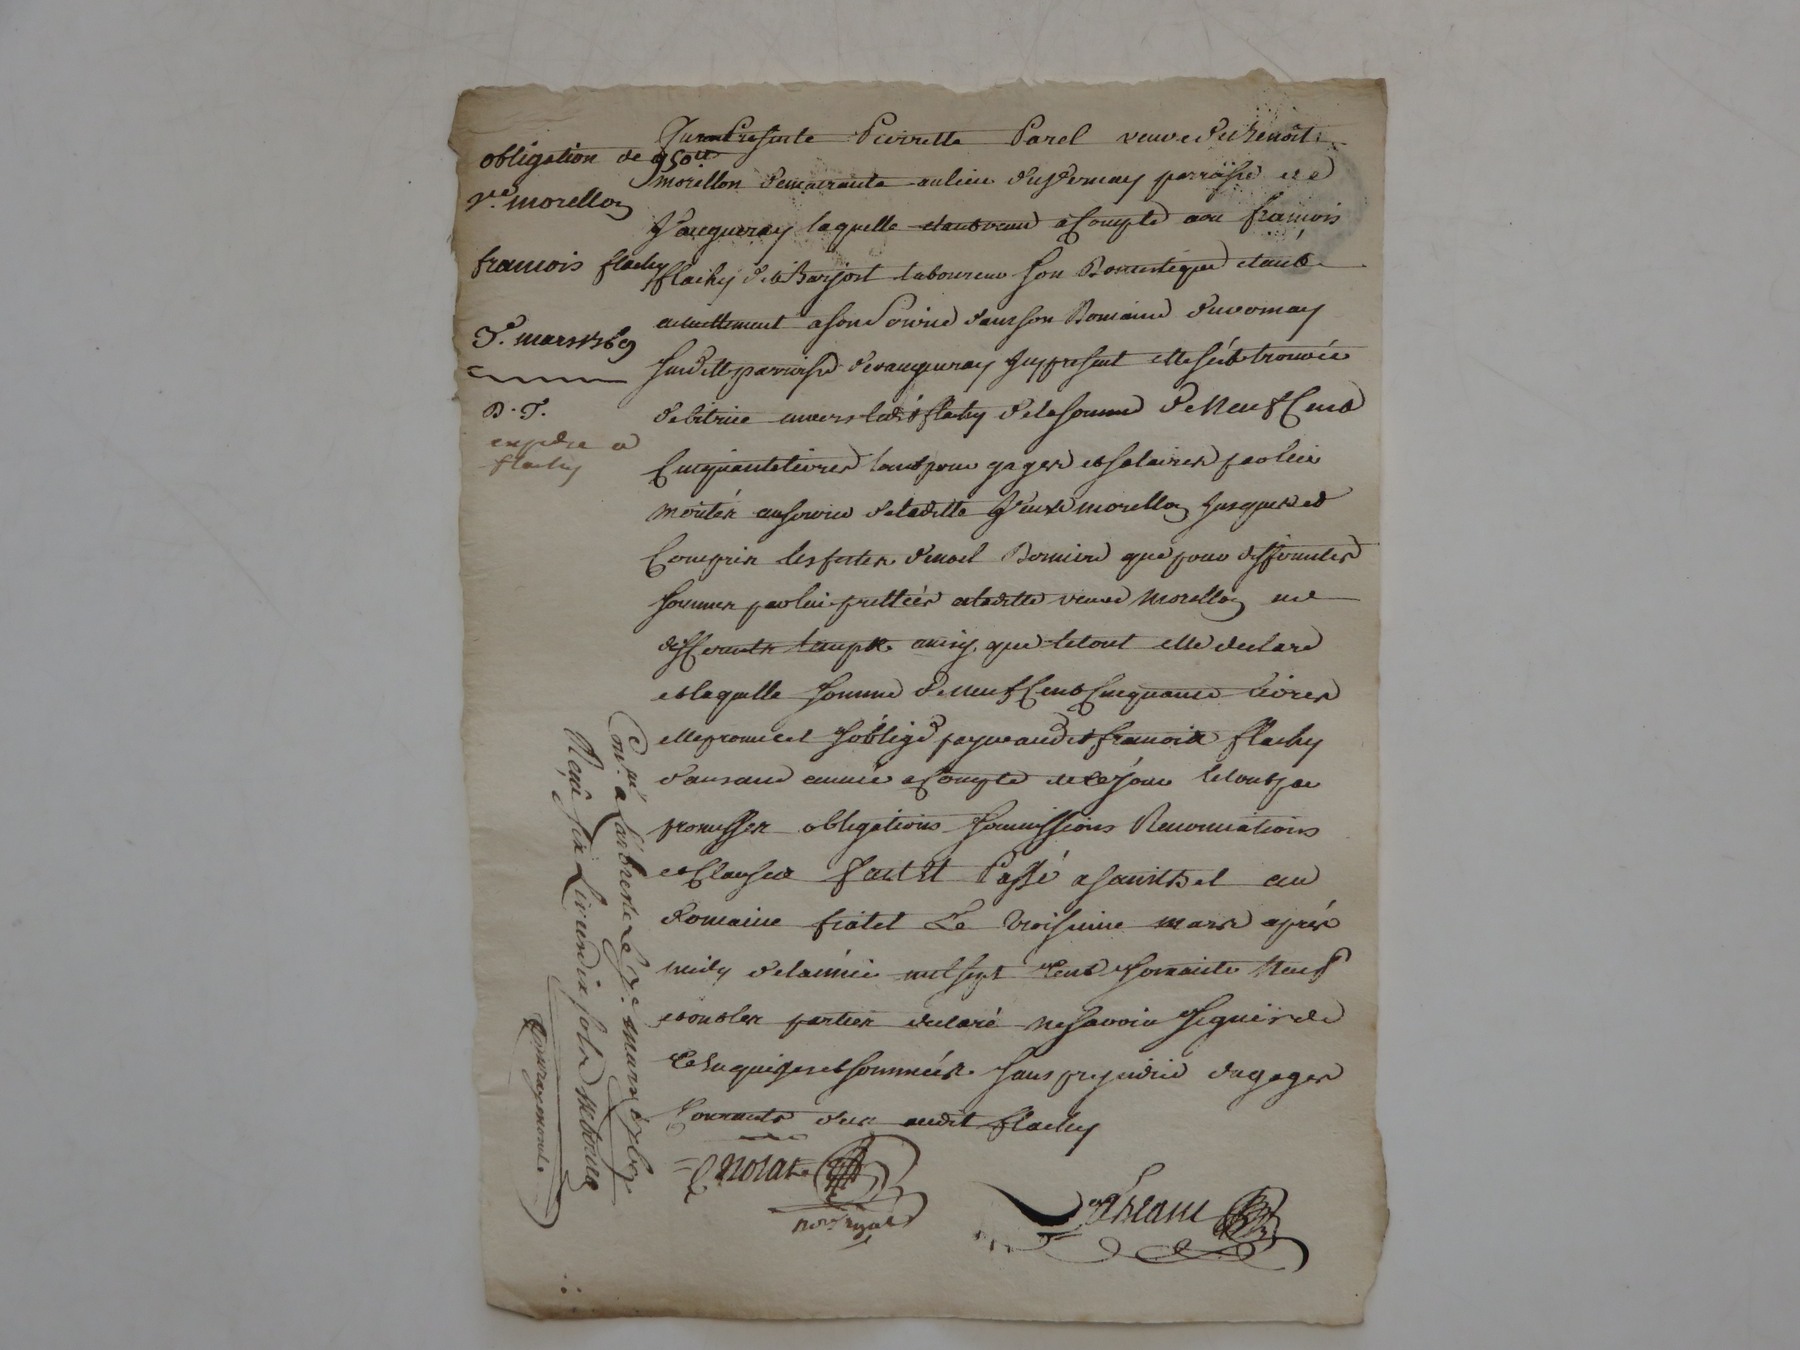 obligation de 950tt
Ve morellon
francois flachy
3e. mars 1769
D. T.
expdie a
flachy
Pierrette Parel veuve de Benoit
morellon demeurante au lieu du Vernay parroisse de
Vaugneray laquelle étant venue a Compte avec francois
flachy laboureur son Domestique étant
actuellement a son service dans son Domaine du vernay
susditte parroisse de vaugneray Icy present elle s'est trouvée
debitrice envers ledit flachy de la somme de Neuf Cent
Cinquante livres tant pour gages et salaires par luy
merités au service de laditte Veuve morellon Jusques et
Compris les festes de noel Derniere que pour differentes
sommes par luy prettées a laditte veuve Morellon en
differents temps ainsy que le tout elle declare
et laquelle somme de Neuf Cent Cinquante livres
elle promet et s'oblige payer audit francois flachy
dans une année a Compter de ce Jour le tout par
promesses obligations soumissions Renonciations
et Clauses Fait et Passé a au
Domaine fiatet Le troisieme mars après
midy de l'année mil sept Cent soixante Neuf
et ont les parties declaré ne savoir signer de
ce Enquises et sommées. sans prejudice du gages
Courants dus audit flachy
not. royal
Cn.lé a Larbresle Le 7e. mars 1769
Reçu six Livres dix sols